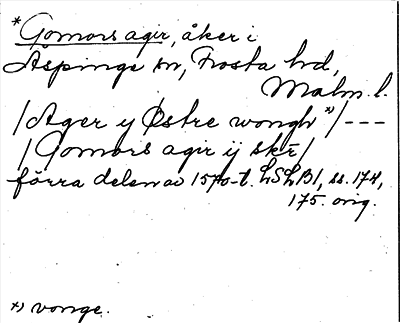 *Gomors agir, åker i
Äspinge sn, Frosta hd,
Malm. l.
/Ager y Østre wongh *)/---
/Gomors agir ij skr̄/
förra delen av 1570-t. LSLB1, ss. 174,
175. orig.
*) vonge.